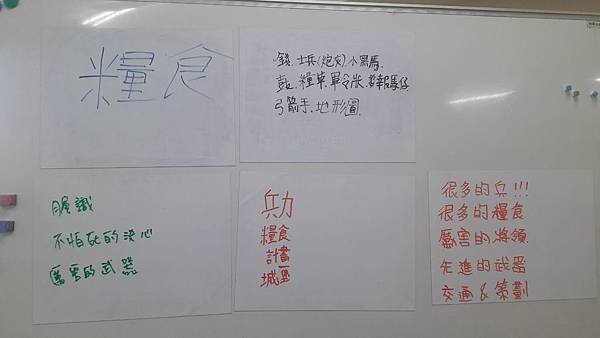 糧食
錢、士兵(炮灰)小黑馬、
鼓、糧草、軍令狀、報馬仔
弓箭手、地形圖
膽識
不怕死的決心
厲害的武器
兵力
糧食
計畫
城
很多的兵!!!
很多的糧食
厲害的將領
先進的武器
交通&策劃